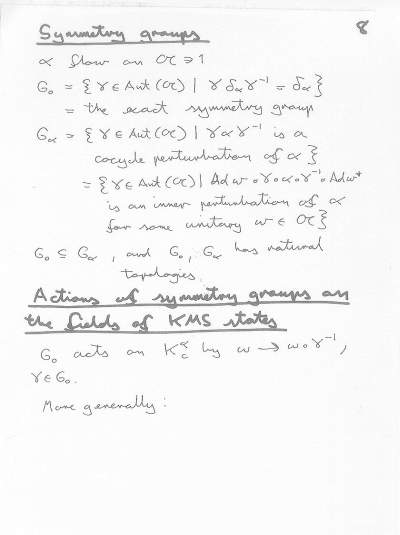 8
Symmetry groups
α flow on 𝔄 ∋ 1
G₀ = { γ ∈ Aut(𝔄) | γ δ_α γ⁻¹ = δ_α }
= the exact symmetry group
G_α = { γ ∈ Aut(𝔄) | γ α γ⁻¹ is a
cocycle perturbation of α }
= { γ ∈ Aut(𝔄) | Ad w ∘ γ ∘ α ∘ γ⁻¹ ∘ Ad w*
is an inner perturbation of α
for some unitary w ∈ 𝔄 }
G₀ ⊆ G_α , and G₀, G_α has natural
topologies.
Actions of symmetry groups on
the fields of KMS states
G₀ acts on K_c^α by ω → ω ∘ γ⁻¹,
γ ∈ G₀.
More generally: